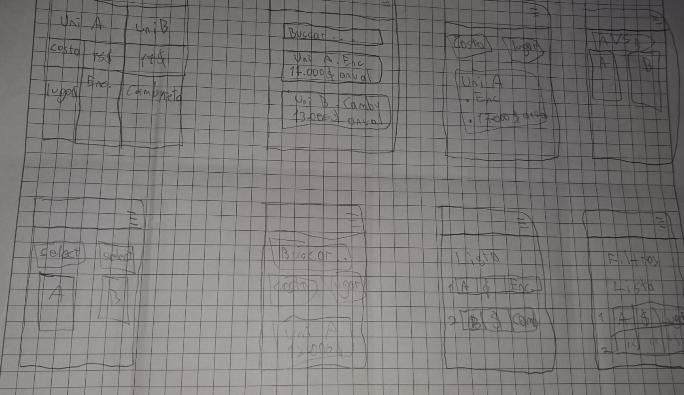 Uni A Uni B
costo
lugar Enc. Camboneta
Buscar...
Uni A. Enc
17.000$ anual
Uni B. Camby
13.000$ anual
Costo lugar
Uni A
. Enc
. 17.000$ anual
A VS B
A B
select select
A B
Buscar..
costo lugar
Uni A
Lista
1 A $ Enc.
2 B $ Cam
Filtros
Lista
1 A $ lugar
2